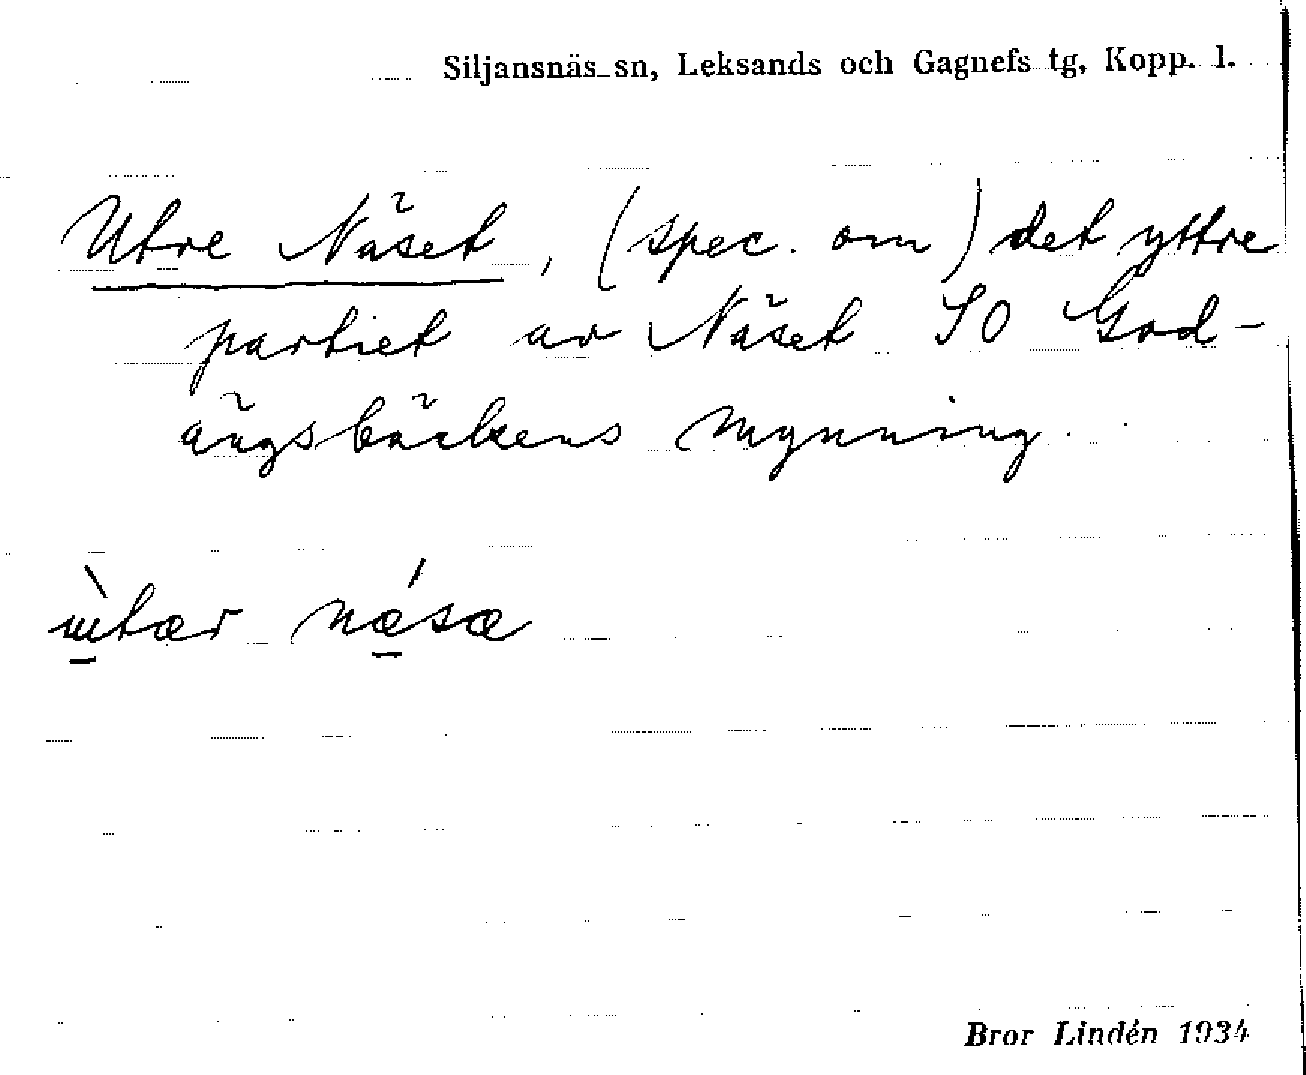 Siljansnäs sn, Leksands och Gagnefs tg, Kopp. l.
Utre Näset, (spec. om) det yttre
partiet av Näset SO God-
ängsbäckens mynning.
ùtær næ´sæ
Bror Lindén 1934